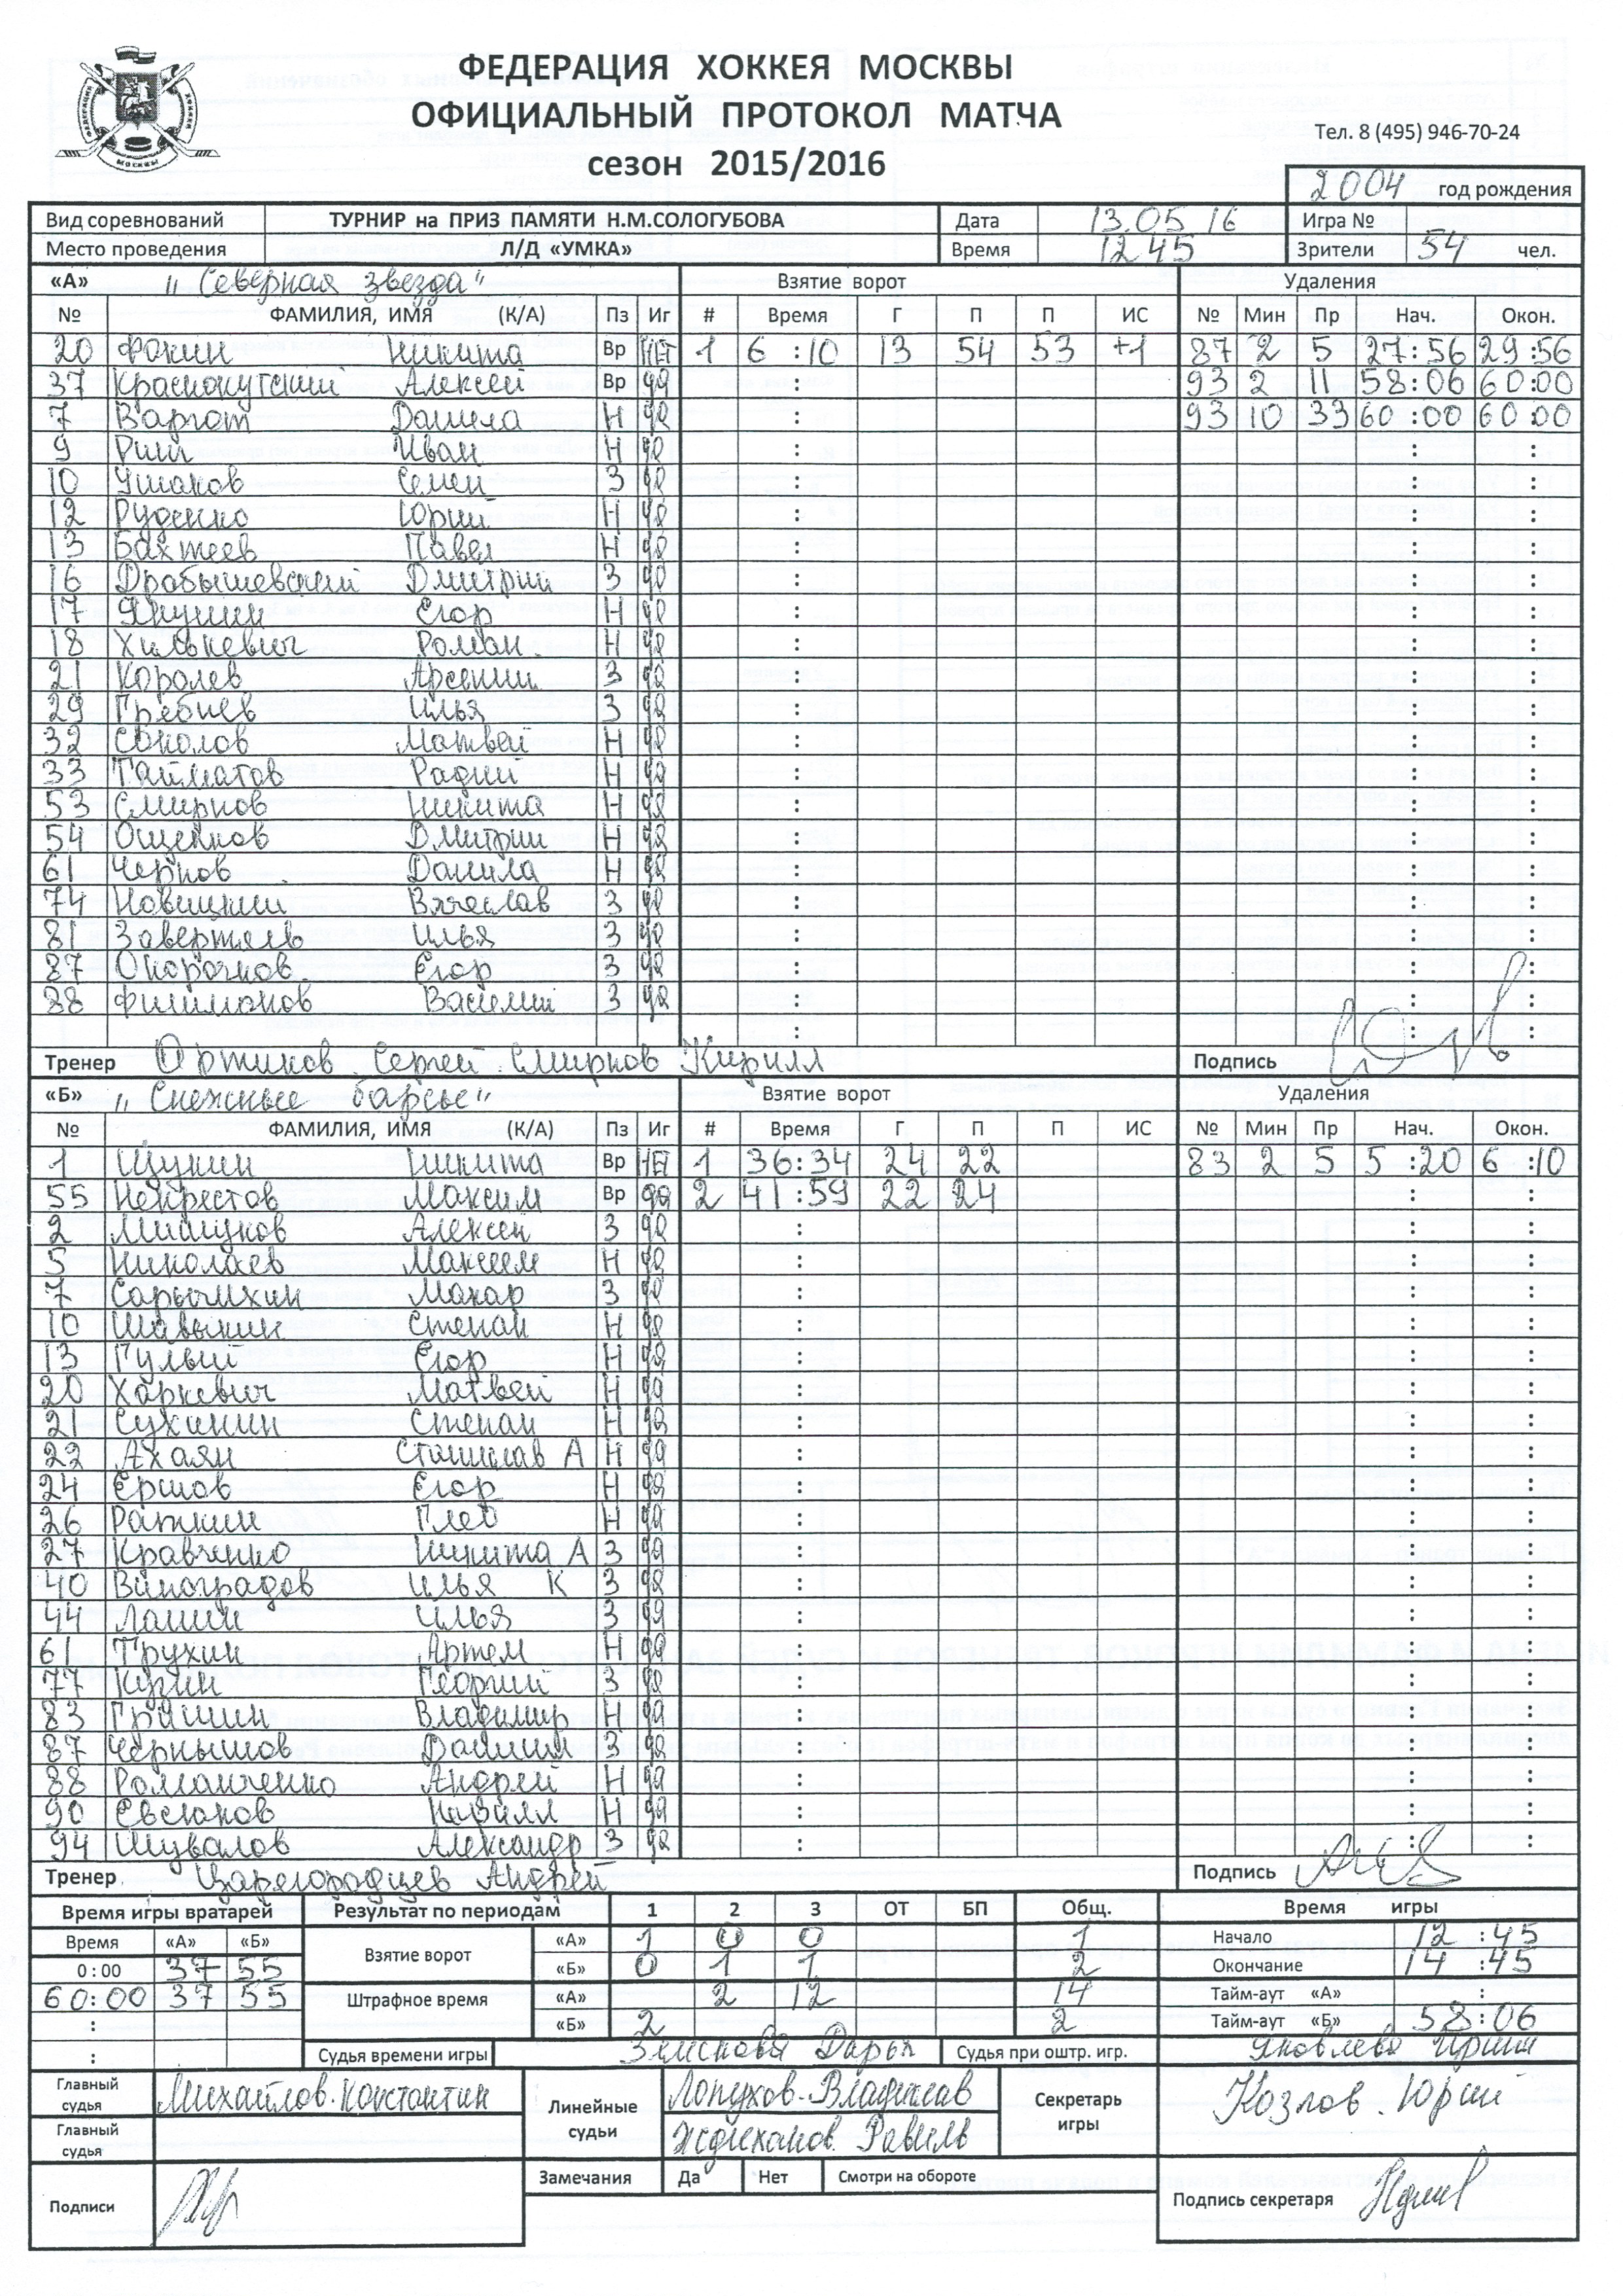 ФЕДЕРАЦИЯ ХОККЕЯ МОСКВЫ
ОФИЦИАЛЬНЫЙ ПРОТОКОЛ МАТЧА
сезон 2015/2016
Тел. 8 (495) 946-70-24
2004 год рождения
Вид соревнований ТУРНИР на ПРИЗ ПАМЯТИ Н.М.СОЛОГУБОВА Дата 13.05 16 Игра №
Место проведения Л/Д «УМКА» Время 12 45 Зрители 54 чел.
«А» "Северная звезда" Взятие ворот Удаления
№ ФАМИЛИЯ, ИМЯ (К/А) Пз Иг # Время Г П П ИС № Мин Пр Нач. Окон.
20 Фокин Никита Вр НЕТ 1 6 :10 13 54 53 +1 87 2 5 27:56 29:56
37 Краснокутский Алексей Вр да : 93 2 11 58:06 60:00
7 Варгот Данила Н да : 93 10 33 60:00 60:00
9 Риш Иван Н да : : :
10 Ушаков Семен З да : : :
12 Руденко Юрий Н да : : :
13 Бахтеев Павел Н да : : :
16 Драбышевский Дмитрий З да : : :
17 Якунин Егор Н да : : :
18 Хилькевич Роман Н да : : :
21 Королев Арсений З да : : :
29 Гребнев Илья З да : : :
32 Соколов Матвей Н да : : :
33 Тайматов Радий Н да : : :
53 Смирнов Никита Н да : : :
54 Ощепков Дмитрий Н да : : :
61 Чернов Данила Н да : : :
74 Новицкий Вячеслав З да : : :
81 Завертяев Илья З да : : :
87 Окорочков Егор З да : : :
88 Филимонов Василий З да : : :
: : :
Тренер Ортиков Сергей Смирнов Кирилл Подпись
«Б» "Снежные барсы" Взятие ворот Удаления
№ ФАМИЛИЯ, ИМЯ (К/А) Пз Иг # Время Г П П ИС № Мин Пр Нач. Окон.
1 Щукин Никита Вр НЕТ 1 36:34 24 22 83 2 5 5 :20 6 :10
55 Некрестов Максим Вр да 2 41:59 22 24 : :
2 Мишуков Алексей З да : : :
5 Николаев Максим Н да : : :
7 Сарычихин Макар З да : : :
10 Шавыкин Степан Н да : : :
13 Гулый Егор Н да : : :
20 Харкевич Матвей Н да : : :
21 Сухинин Степан Н да : : :
22 Ахаян Станислав А Н да : : :
24 Ершов Егор Н да : : :
26 Раткин Глеб Н да : : :
27 Кравченко Никита А З да : : :
40 Виноградов Илья К З да : : :
44 Лапин Илья З да : : :
61 Трухин Артем Н да : : :
77 Кузин Георгий З да : : :
83 Гришин Владимир Н да : : :
87 Чернышов Даниил З да : : :
88 Романченко Андрей Н да : : :
90 Евсюков Кирилл Н да : : :
94 Шувалов Александр З да : : :
Тренер Царегородцев Андрей Подпись
Время игры вратарей Результат по периодам 1 2 3 ОТ БП Общ. Время игры
Время «А» «Б» Взятие ворот «А» 1 0 0 1 Начало 12 :45
0:00 37 55 «Б» 0 1 1 2 Окончание 14 :45
60:00 37 55 Штрафное время «А» 2 12 14 Тайм-аут «А» :
: «Б» 2 2 Тайм-аут «Б» 58:06
: Судья времени игры Земскова Дарья Судья при оштр. игр. Яковлева
Главный судья Михайлов Константин Линейные судьи Лопухов Владислав Секретарь игры Козлов Юрий
Главный судья Равиль
Подписи Замечания Да Нет Смотри на обороте Подпись секретаря